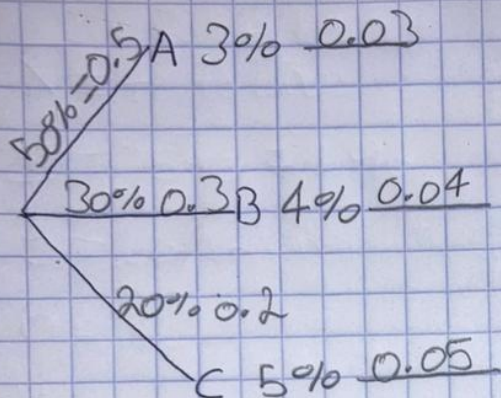 50%=0.5 A 3% 0.03
30% 0.3 B 4% 0.04
20% 0.2
C 5% 0.05